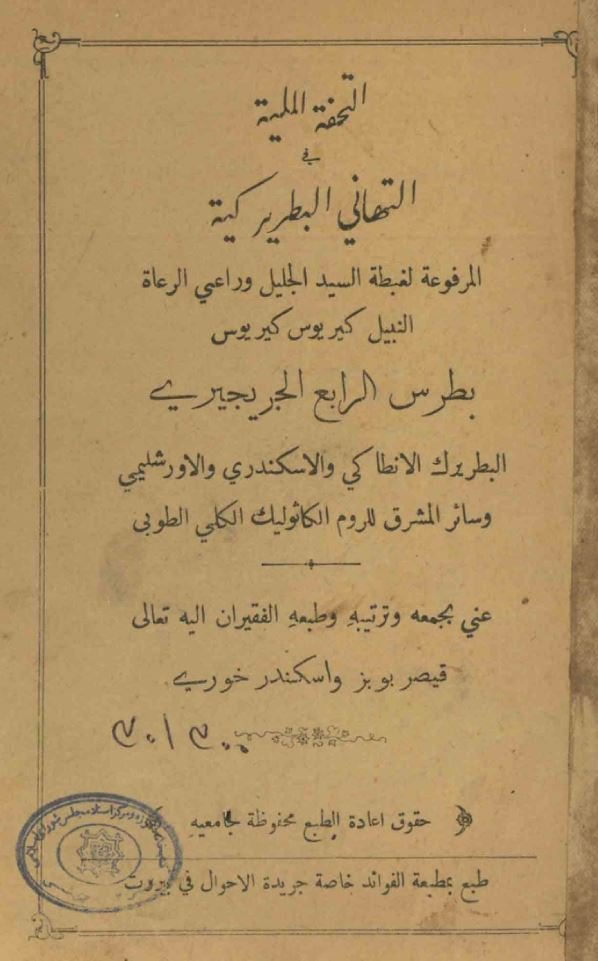 التحفة الملية
في
التهاني البطريركية
المرفوعة لغبطة السيد الجليل وراعي الرعاة
النبيل كيريوس كيريوس
بطرس الرابع الجريجيري
البطريرك الانطاكي والاسكندري والاورشليمي
وسائر المشرق للروم الكاثوليك الكلي الطوبى
عني بجمعه وترتيبهِ وطبعهِ الفقيران اليه تعالى
قيصر بوبز واسكندر خوري
حقوق اعادة الطبع محفوظة لجامعيهِ
طبع بمطبعة الفوائد خاصة جريدة الاحوال في بيروت